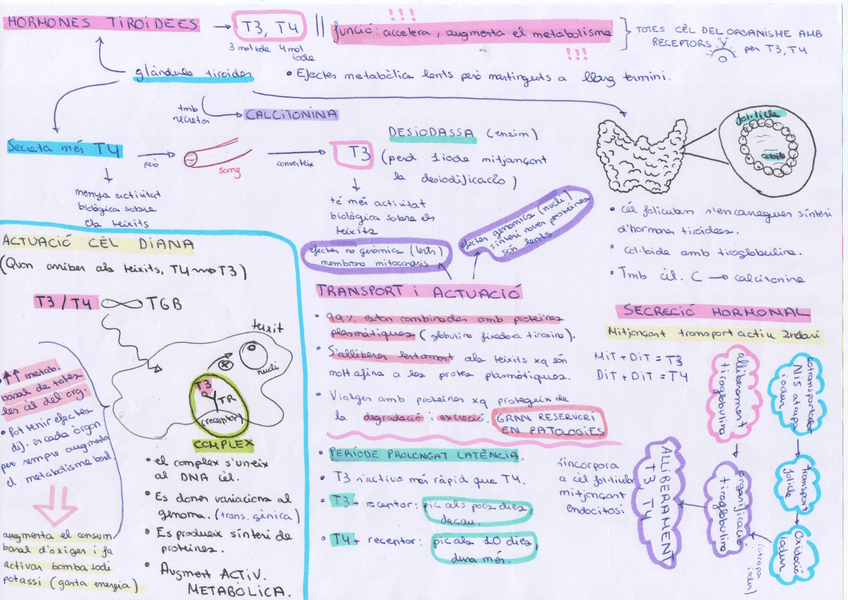 HORMONES TIROÏDEES → T3, T4
3 mol iode 4 mol iode
!!!
funció: accelera, augmenta el metabolisme
!!!
TOTES CÈL DEL ORGANISME AMB
RECEPTORS
per T3, T4
glàndula tiroides
• Efectes metabòlics lents però mantinguts a llarg termini.
tmb secreta
CALCITONINA
Secreta més T4
però
sang
converteix
T3
DESIODASSA (enzim)
(perd 1 iode mitjançant
la desiodificació)
fol·licle
col·loide
menys activitat
biològica sobre
els teixits
té més activitat
biològica sobre els
teixits
efectes no genòmics (lents)
membrana mitocondris
efectes genòmics (nucli)
síntesi noves proteïnes
són lents
• Cèl foliculars s'encarreguen síntesi
d'hormones tiroïdees.
• col·loide amb tiroglobulina.
• Tmb cèl. C → calcitonina
ACTUACIÓ CÈL DIANA
(Quan arriben als teixits, T4 → T3)
T3 / T4
TGB
teixit
nucli
T3
TR
(receptor)
COMPLEX
↑↑ metab.
basal de totes
les cèl del org.
• Pot tenir efectes
dif. en cada òrgan
però sempre augmenta
el metabolisme basal
augmenta el consum
basal d'oxigen i fa
activar bomba sodi
potassi (gasta energia)
• el complex s'uneix
al DNA cèl.
• Es donen variacions al
genoma. (trans. gènica)
• Es produeix síntesi de
proteïnes.
• Augment ACTIV.
METABÒLICA.
TRANSPORT i ACTUACIÓ
• 99% estan combinades amb proteïnes
plasmàtiques (globulina fixadora tiroxina).
• S'allibera lentament als teixits xq són
molt afins a les protes plasmàtiques.
• Viatgen amb proteïnes xq protegeix de
la degradació i excreció. GRAN RESERVORI
EN PATOLOGIES
• PERÍODE PROLONGAT LATÈNCIA.
• T3 s'activa més ràpid que T4.
• T3 + receptor: pic als pocs dies,
decau.
• T4 + receptor: pic als 10 dies,
dura més.
SECRECIÓ HORMONAL
Mitjançant transport actiu 2ndari
MiT + DiT = T3
DiT + DiT = T4
cotransportador
NIS atrapa
iodur
transport
folicle
Oxidació
iodur
(atrapa iodur)
organificació
tiroglobulina
alliberament
tiroglobulina
ALLIBERAMENT
T3 T4
s'incorpora
a cèl fol·licular
mitjançant
endocitosi